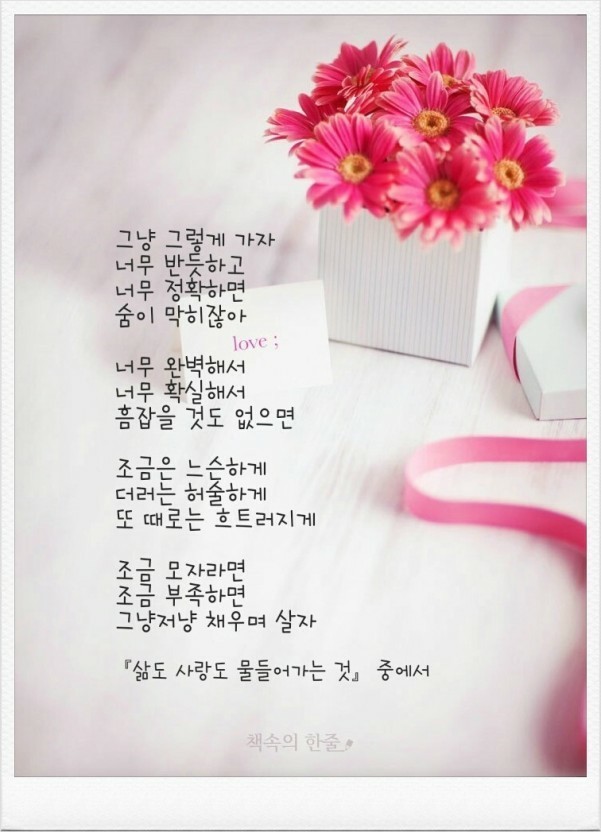 그냥 그렇게 가자
너무 반듯하고
너무 정확하면
숨이 막히잖아
love ;
너무 완벽해서
너무 확실해서
흠잡을 것도 없으면
조금은 느슨하게
더러는 허술하게
또 때로는 흐트러지게
조금 모자라면
조금 부족하면
그냥저냥 채우며 살자
『삶도 사랑도 물들어가는 것』 중에서
책속의 한줄